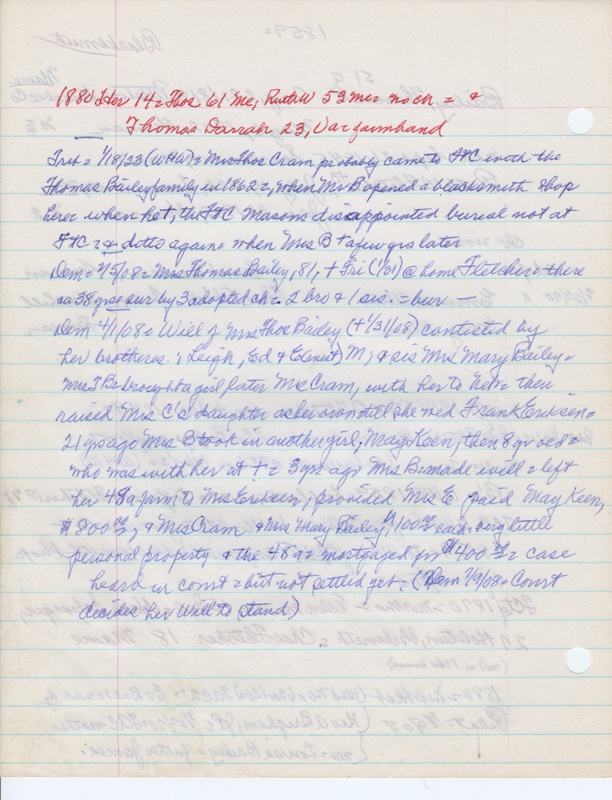 1880 Her 14 = Thos 61 Me, Ruth W 53 Me = no ch = &
Thomas Darrah 23, Va = farmhand
Trib = 1/18/23 (WHW) = Mrs Thos Cram probably came to FtC with the
Thomas Bailey family in 1862 =, when Mr B opened a blacksmith shop
here = when he †, the FtC Masons disappointed burial not at
FtC = & ditto again = when Mrs B † a few yrs later
Dem = 2/5/08 = Mrs Thomas Bailey, 81, † Fri (1/31) @ home Fletcher = there
ca 38 yrs = sur by 3 adopted ch = 2 bro & 1 sis. = bur —
Dem 4/1/08 = Will of Mrs Thos Bailey († 1/31/08) contested by
her brothers: Leigh, Ed & M; & sis Mrs Mary Bailey =
Mrs T B = brought a girl, later Mrs Cram, with her to Neb = then
raised Mrs C's daughter as her own till she md Frank Eriksen =
21 yrs ago Mrs B took in another girl, May Keen, then 8 yrs old =
who was with her at † = 3 yrs ago Mrs B = made will = left
her 48 a farm to Mrs Eriksen, provided Mrs E paid May Keen,
$800 00/100, & Mrs Cram & Mrs Mary Bailey, $100 00/100 each = very little
personal property & the 48 a = mortgaged for $400 00/100 = case
heard in court = but not settled yet = (Dem 7/9/08 = Court
decides her Will to stand)